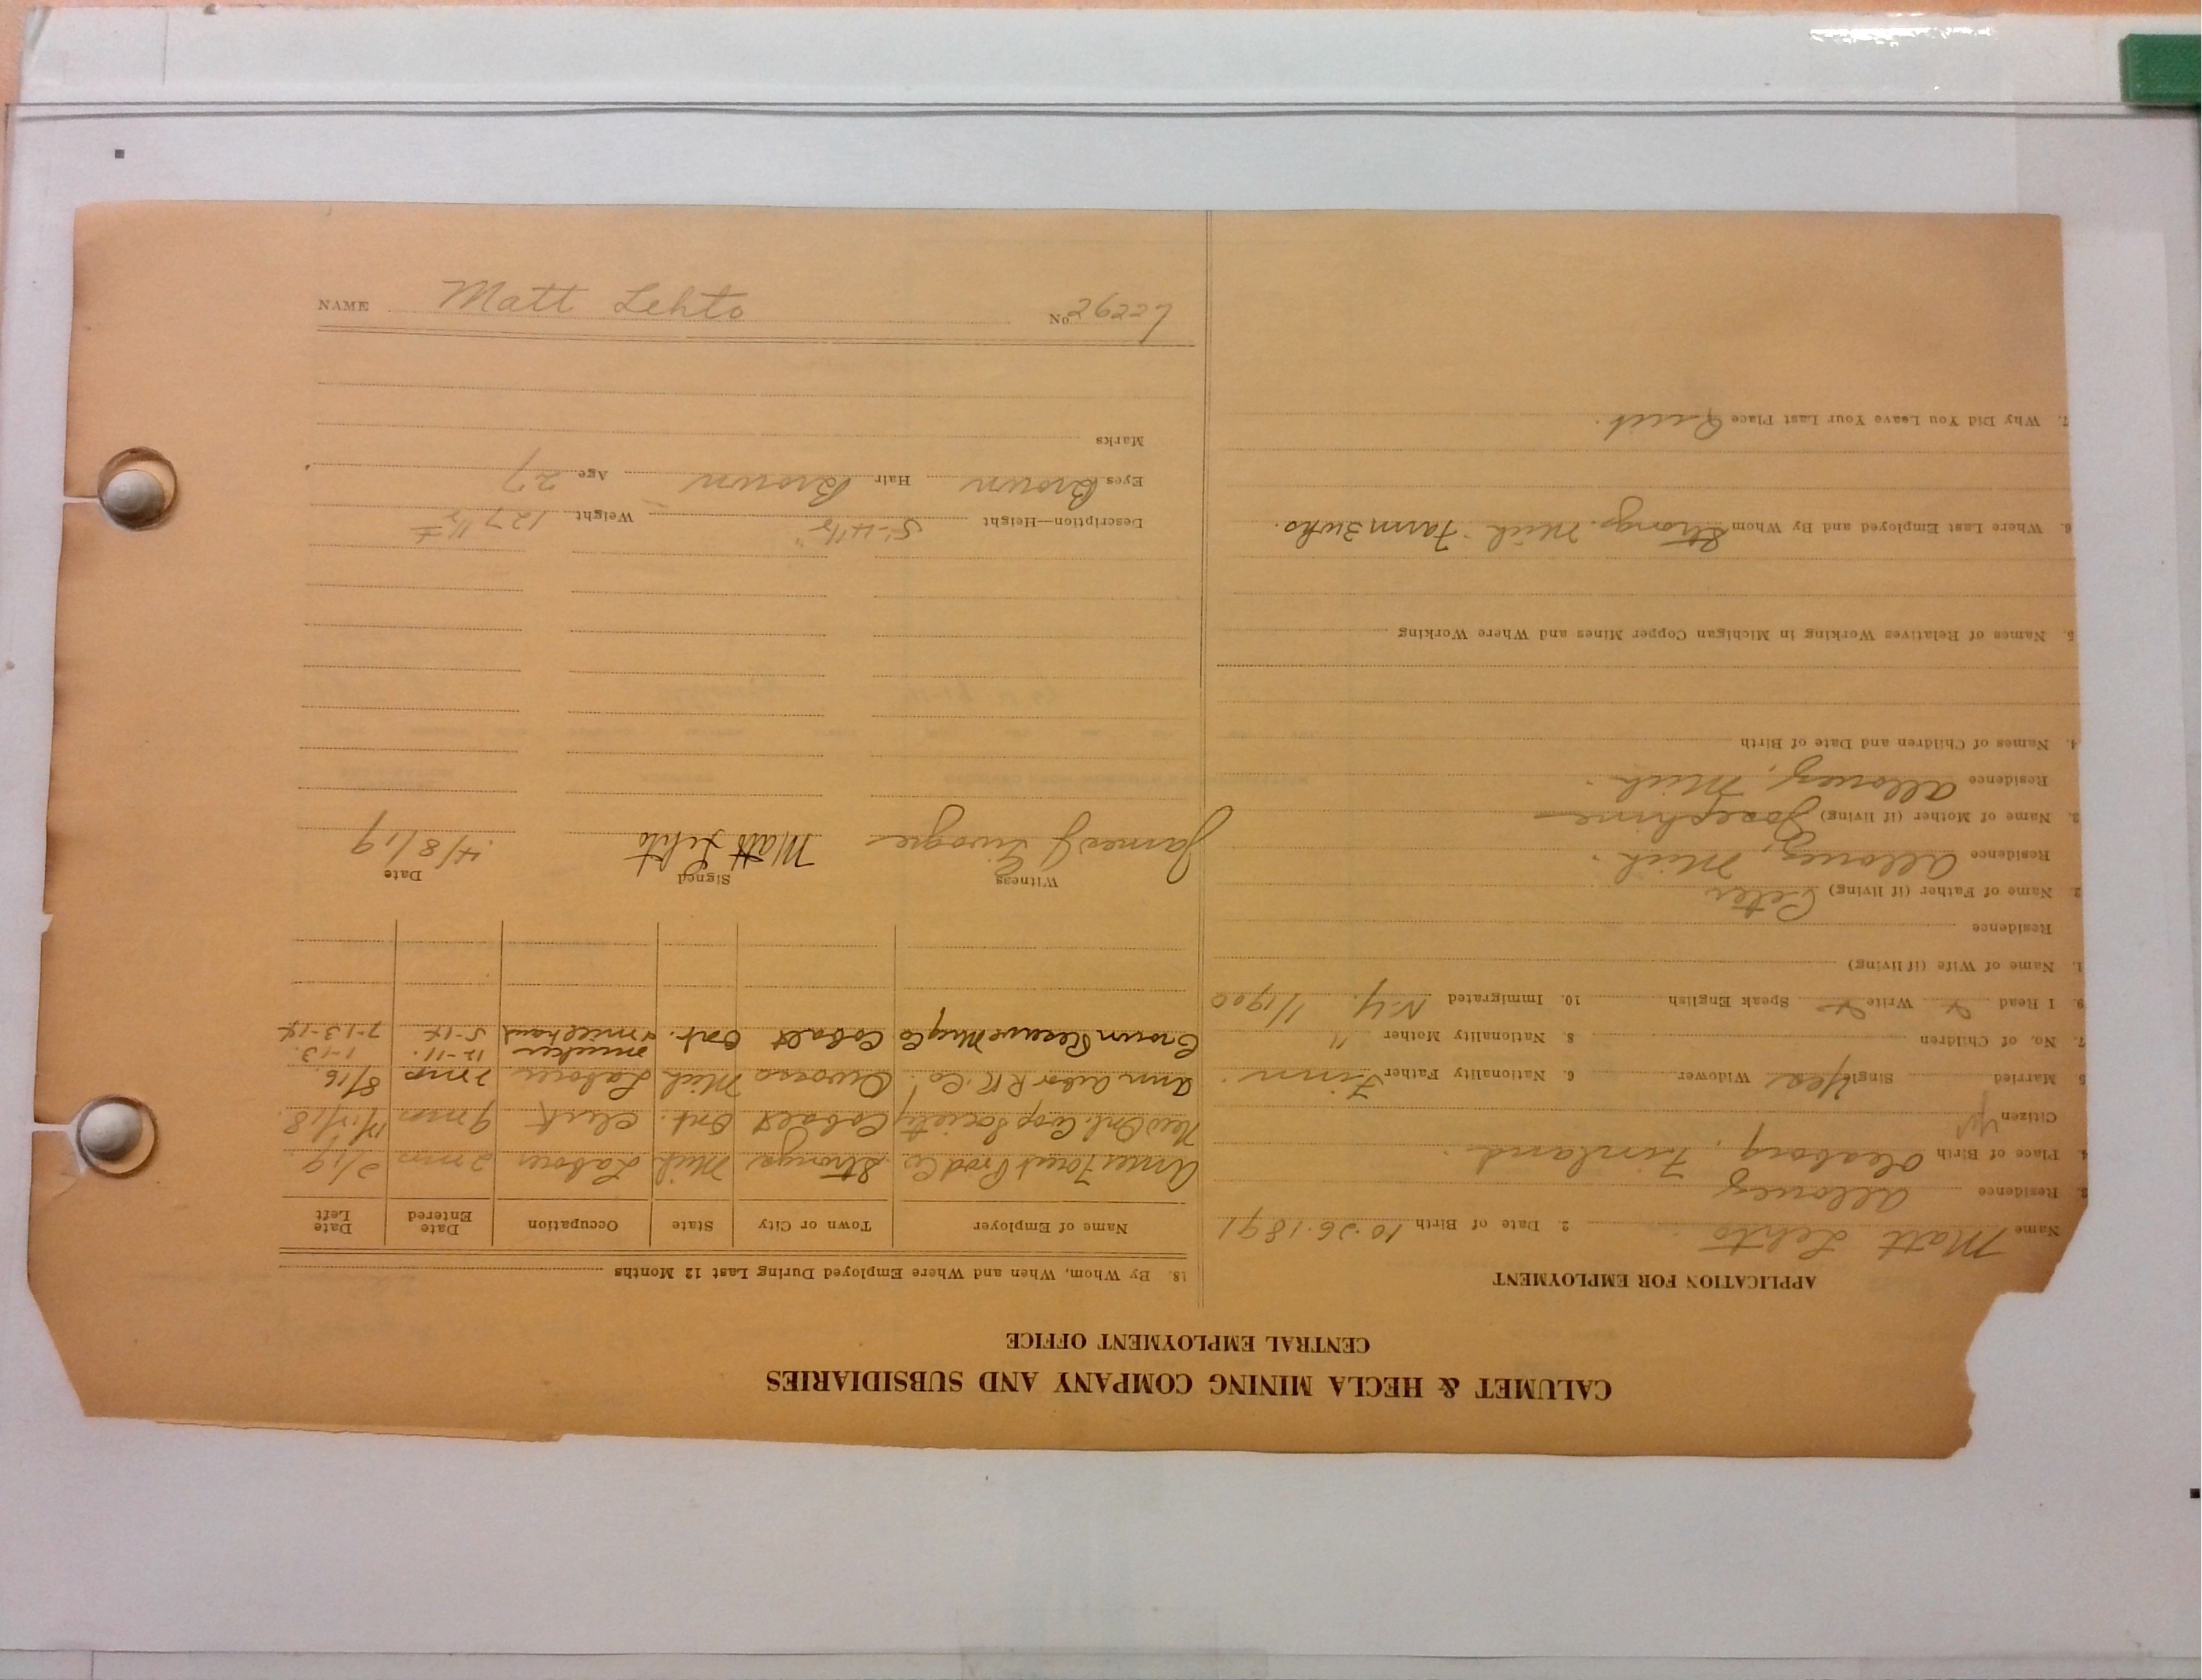 CALUMET & HECLA MINING COMPANY AND SUBSIDIARIES
CENTRAL EMPLOYMENT OFFICE
APPLICATION FOR EMPLOYMENT
Name Matt Lehto 2. Date of Birth 10-26-1891
3. Residence Allouez
4. Place of Birth Oleaborg, Finland.
Citizen yes
5. Married Single Yes Widower 6. Nationality Father Finn.
7. No. of Children 8. Nationality Mother "
9. I Read Write Speak English 10. Immigrated N.Y. 1/1900
1. Name of Wife (if living)
Residence
2. Name of Father (if living) Peter
Residence Allouez, Mich.
3. Name of Mother (if living) Josephine
Residence Allouez, Mich.
4. Names of Children and Date of Birth
5. Names of Relatives Working in Michigan Copper Mines and Where Working
6. Where Last Employed and By Whom Strongs. Mich. Farm
7. Why Did You Leave Your Last Place Quit.
18. By Whom, When and Where Employed During Last 12 Months
Name of Employer Town or City State Occupation Date Entered Date Left
Forest Prod Co Strongs Mich Labour 2 mos 2/19
New Ont. Coop Society Cobalt Ont. Clerk 9 mos 18
Ann Arbor RR. Co. Owosso Mich Laborer 2 mos 8/16.
mucker 12-11. 1-13.
Crown Reserve Mng Co Cobalt Ont. & mill hand 5-14 7-13-14
Witness Signed Date
James J. Matt Lehto 4/8/19
Description—Height 5'-4½" Weight 127½ #
Eyes Brown Hair Brown Age 27
Marks
NAME Matt Lehto No. 29227